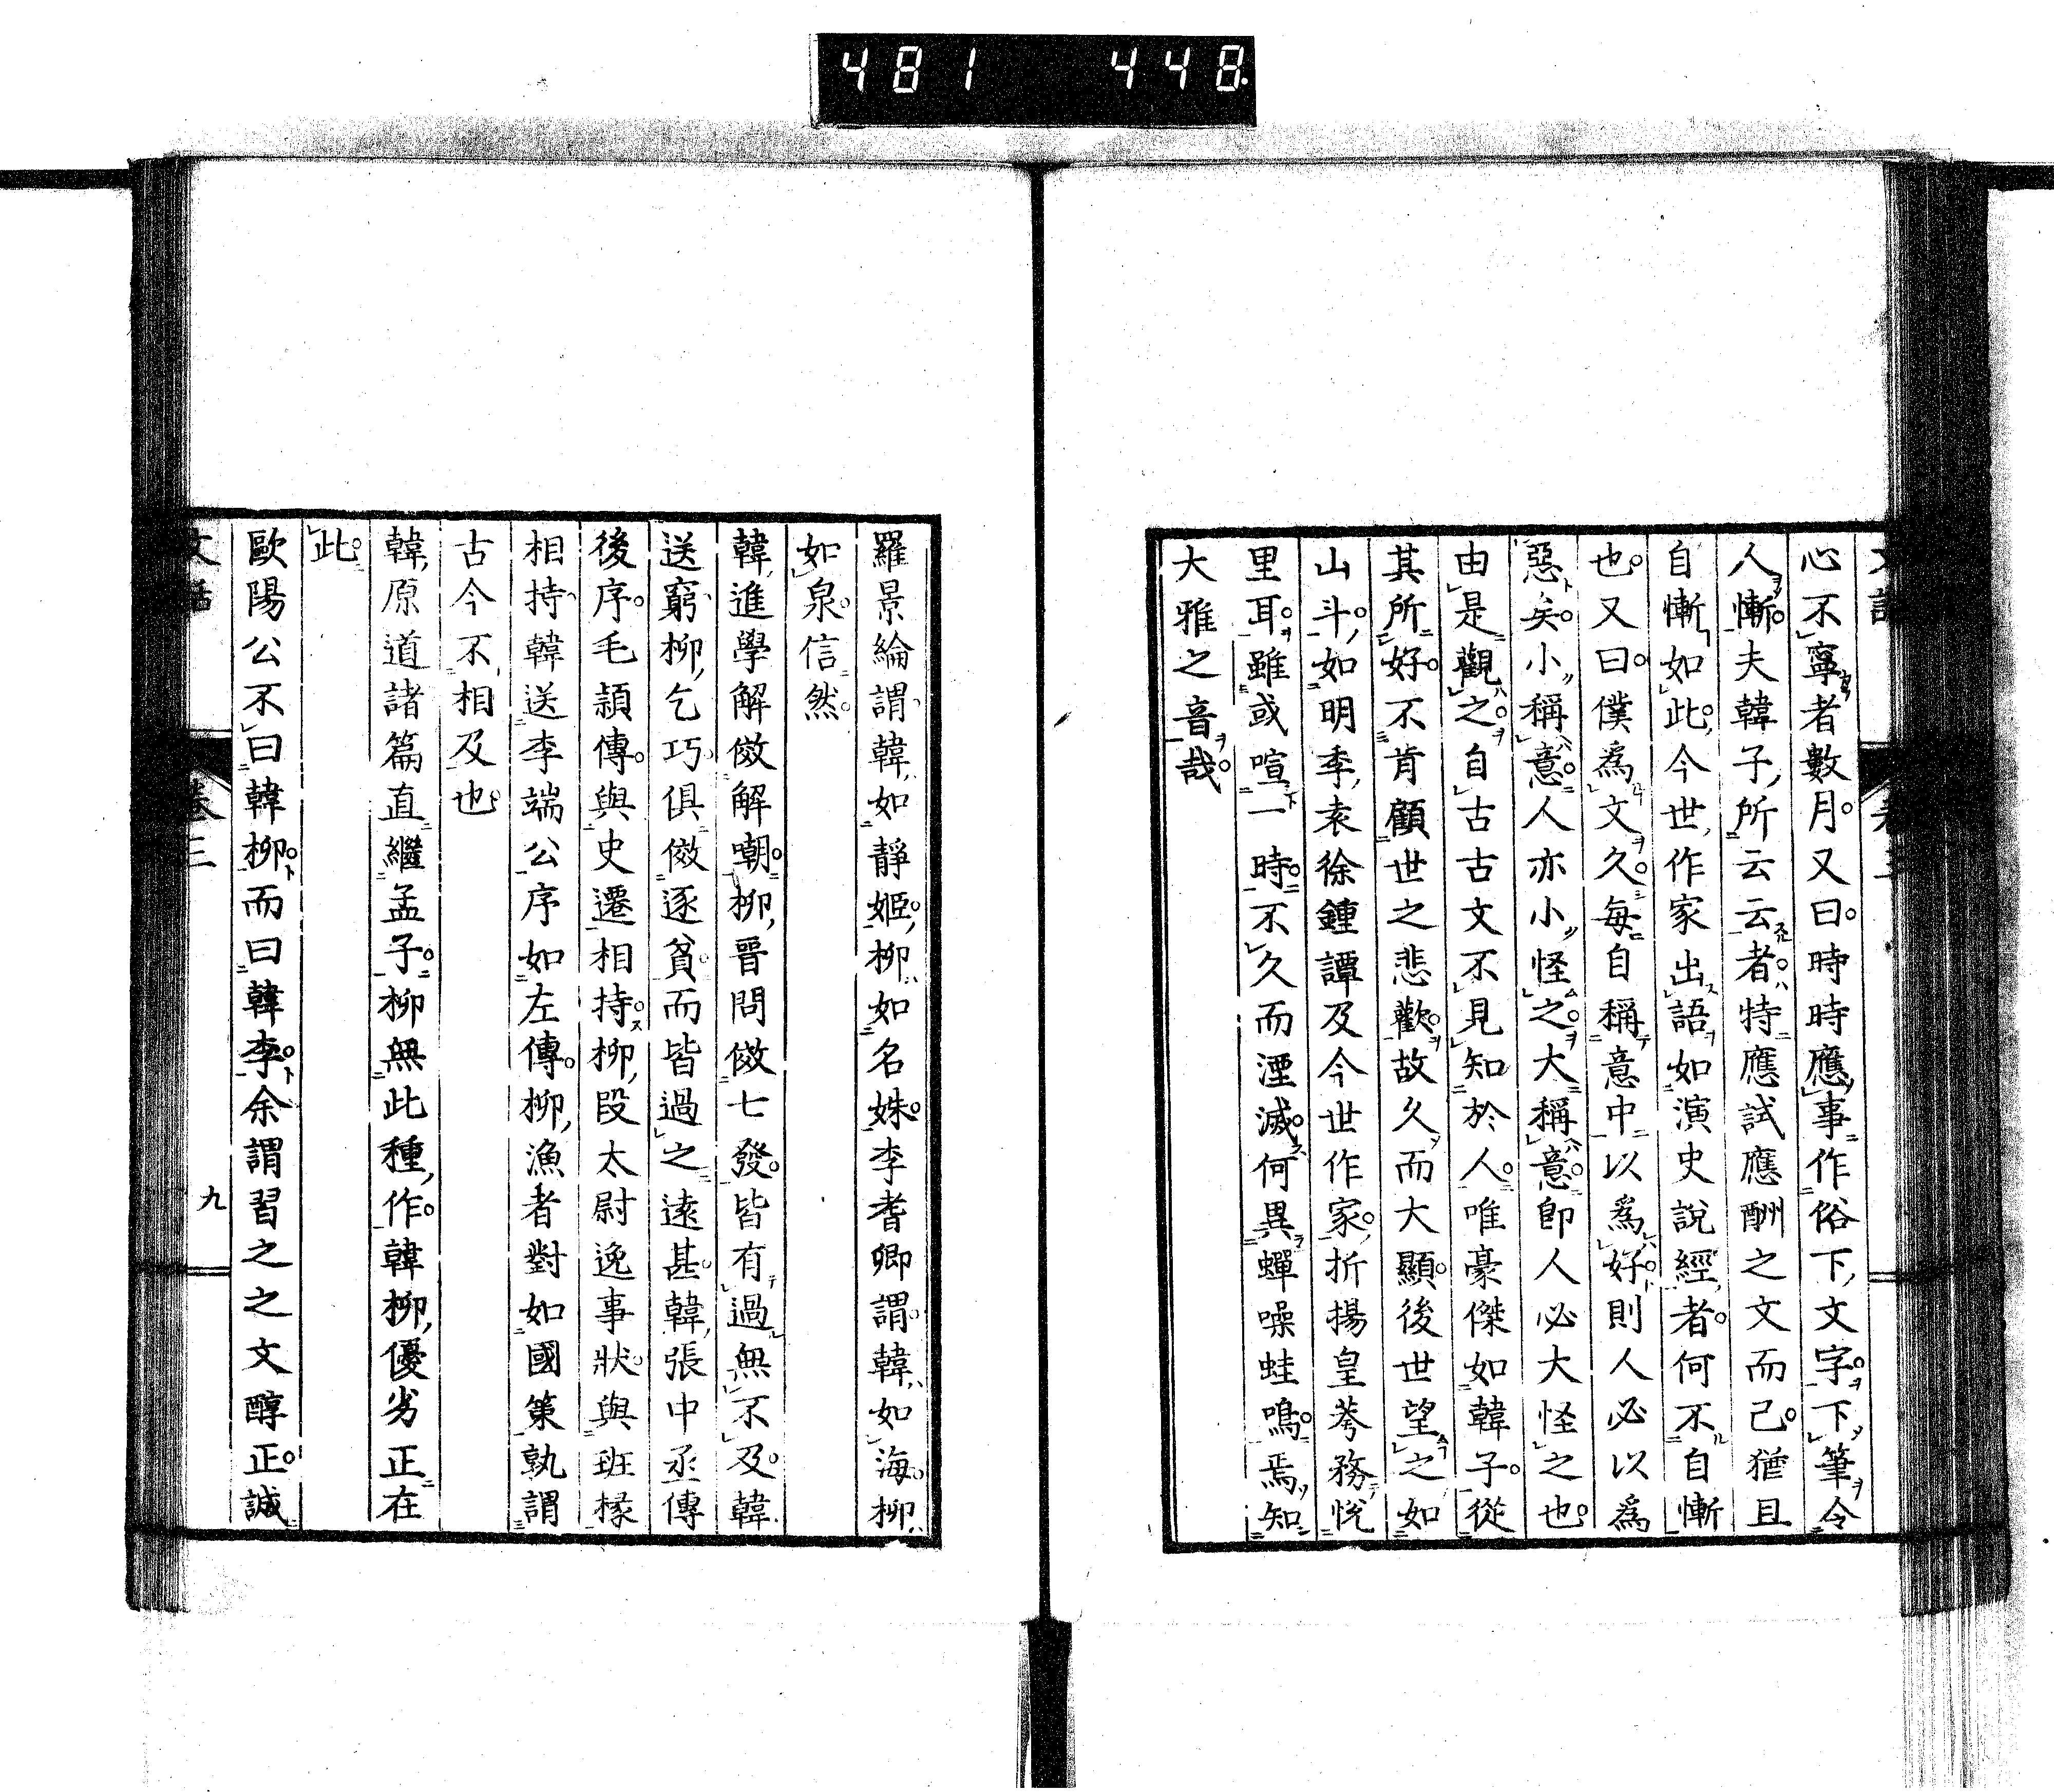 481 448
心不寧者數月又曰時時應事作俗下文字下筆令
人慚夫韓子所云云者特應試應酬之文而已猶且
自慚如此今世作家出語如演史說經者何不自慚
也又曰僕爲文久每自稱意中以爲好則人必以爲
惡矣小稱意人亦小怪之大稱意即人必大怪之也
由是觀之自古古文不見知於人唯豪傑如韓子從
其所好不肯顧世之悲歡故久而大顯後世望之如
山斗如明季袁徐鍾譚及今世作家折揚皇荂務悅
里耳雖或喧一時不久而湮滅何異蟬噪蛙鳴焉知
大雅之音哉
羅景綸謂韓如靜姬柳如名姝李耆卿謂韓如海柳
如泉信然
韓進學解倣解嘲柳晉問倣七發皆有過無不及韓
送窮柳乞巧俱倣逐貧而皆過之遠甚韓張中丞傳
後序毛穎傳與史遷相持柳段太尉逸事狀與班椽
相持韓送李端公序如左傳柳漁者對如國策孰謂
古今不相及也
韓原道諸篇直繼孟子柳無此種作韓柳優劣正在
此
歐陽公不曰韓柳而曰韓李余謂習之之文醇正誠
文話 卷三 九